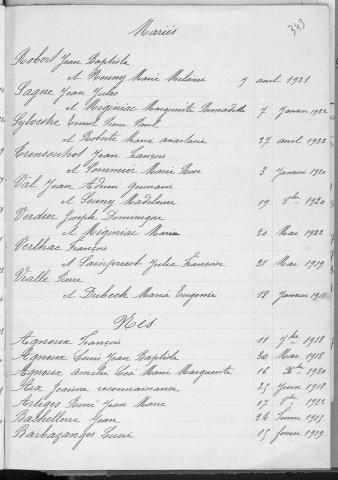 343
Mariés
Robert Jean Baptiste
et Rouny Marie Melanie 7 avril 1921
Sagne Jean Jules
et Miginiac Marguerite Bernadette 7 Janvier 1922
Sylvestre Ernest Pierre Paul
et Roberte Marie anastasie 27 avril 1922
Jean François
et Pommier Marie Rose 3 Janvier 1920
Val Jean Adrien Germain
et Madeleine 19 8bre 1920
Verdier Joseph Dominique
et Miginiac Maria 20 Mai 1922
Verlhac François
et Sainpriest Julia Françoise 21 Mai 1919
Vialle Pierre
et Dubech Maria Eugenie 18 Janvier
Nés
Agnoux François 11 7bre 1918
Agnoux Louis Jean Baptiste 20 Mai 1918
Agnoux Marie Marguerite 16 Xbre 1920
Aix Jeanne reconnaissance 25 Juin 1918
Artiges René Jean Marie 17 8bre 1922
Bachellerie Jean 24 1915
Barbazanges Lucie 15 fevrier 1919